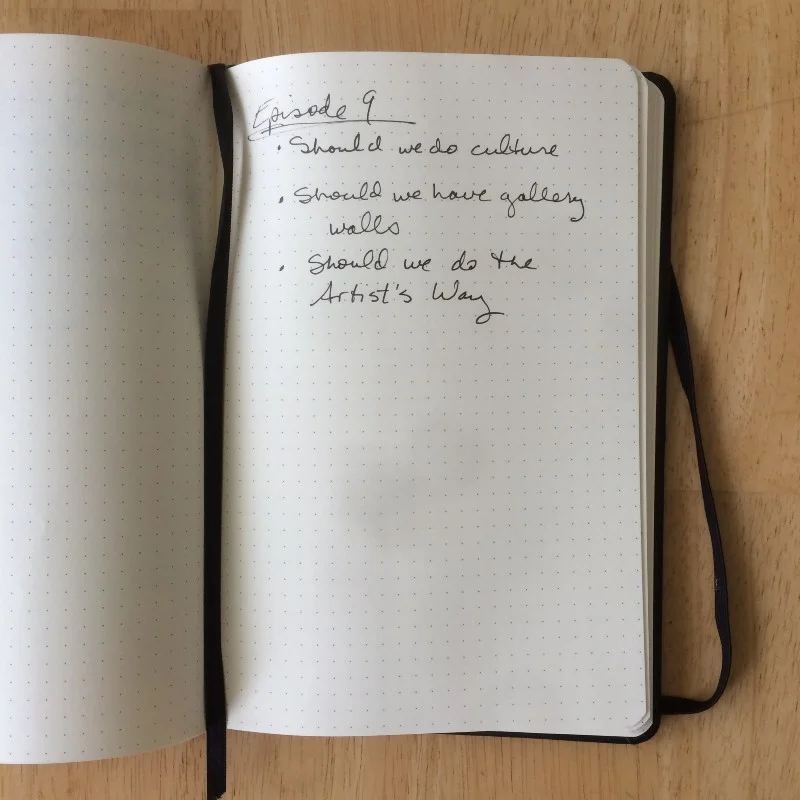 Episode 9
• Should we do culture
• Should we have gallery
walls
• Should we do the
Artist's Way